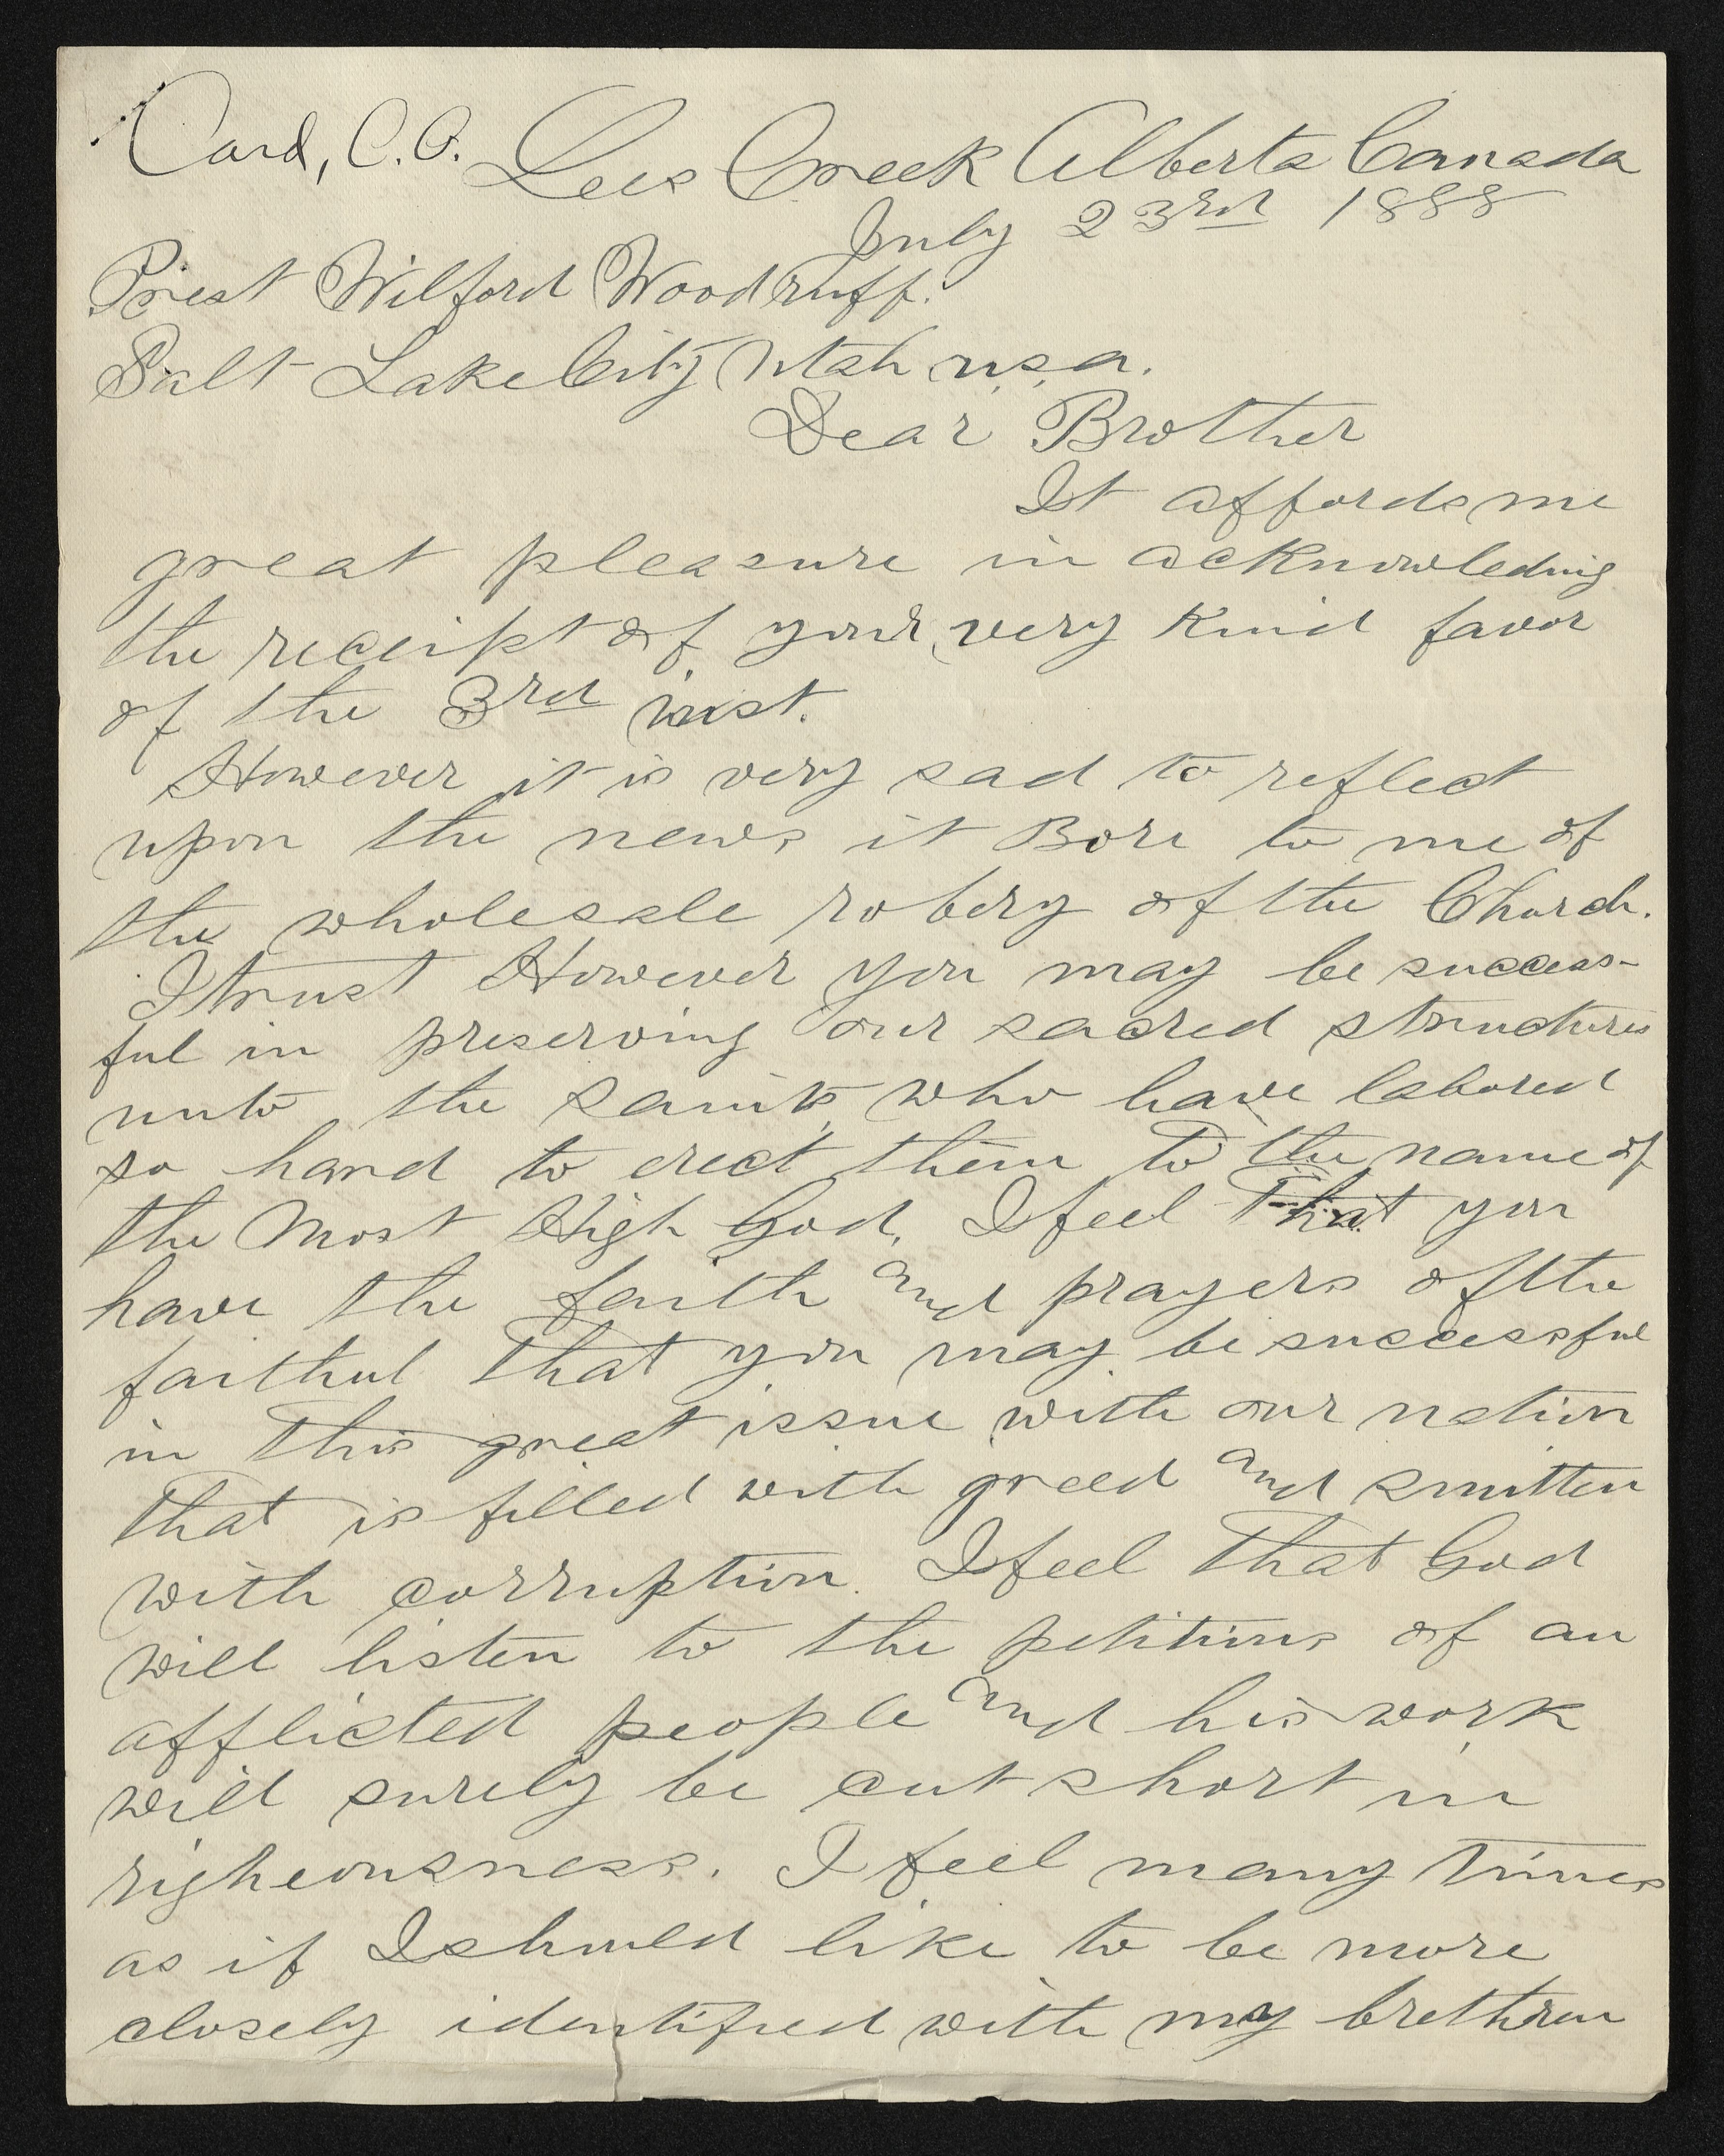 Card, C.O. Lees Creek Alberta Canada
July 23rd 1888
Prest Wilford Woodruff.
Salt Lake City Utah U.S.A.
Dear Brother
It affords me
great pleasure in acknowleding
the receipt of your very kind favor
of the 3rd inst.
However it is very sad to reflect
upon the news it Bore to me of
the wholesale robery of the Church.
I trust However you may be success-
ful in preserving our sacred structures
unto the saints who have labored
so hard to erect them to the name of
the Most High God, I feel That you
have the faith and prayers of the
faithul that you may be successful
in this great issue with our nation
that is filled with greed and smitten
with corruption. I feel that God
will listen to the petitions of an
afflicted people and his work
will surely be cut short in
righeousness. I feel many times
as if I should like to be more
closely identified with my brethren